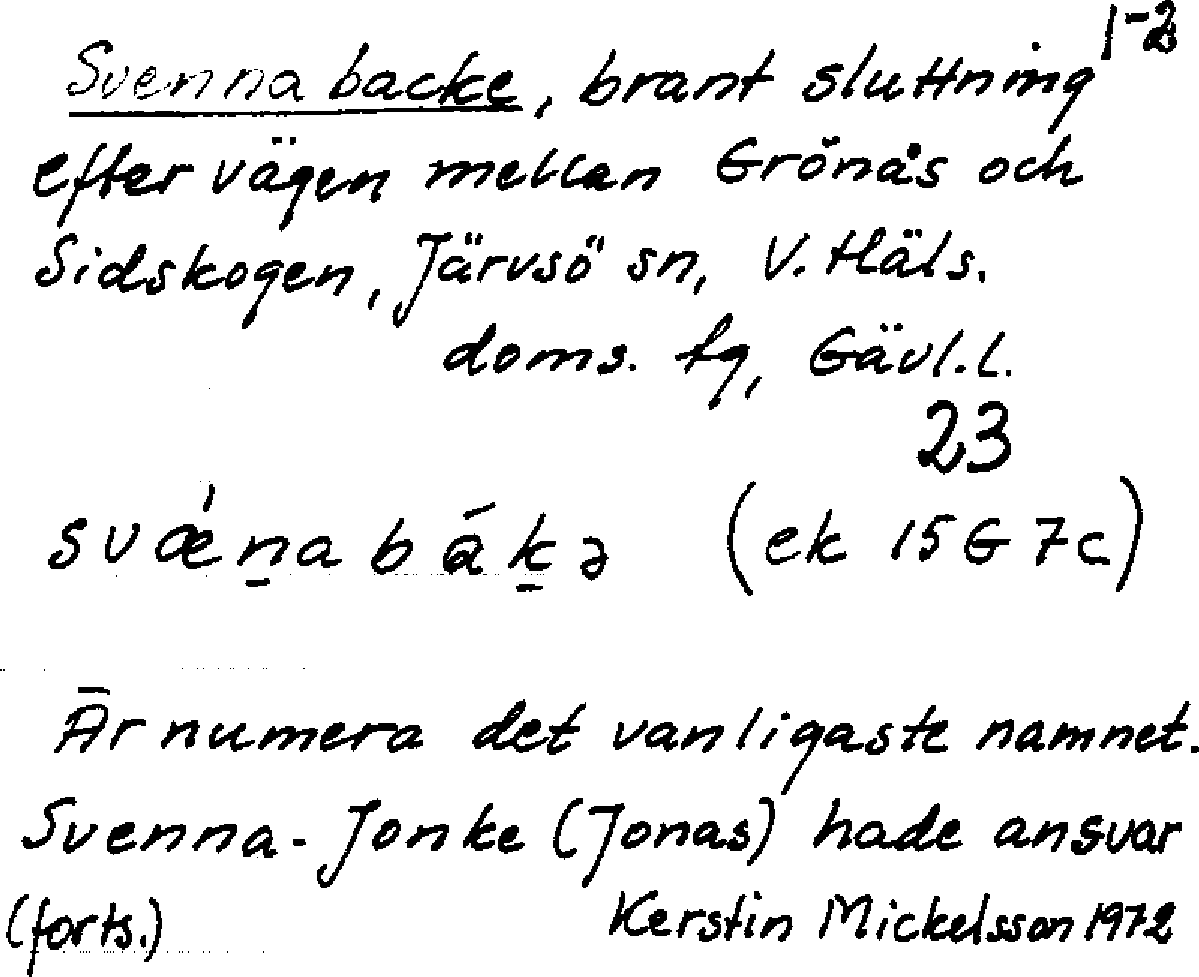 1-2
Svennabacke, brant sluttning
efter vägen mellan Grönås och
Sidskogen, Järvsö sn, V. Häls.
doms. tg, Gävl. l.
23
svǽn̲abák̲ə (ek 15G 7c)
Är numera det vanligaste namnet.
Svenna-Jonke (Jonas) hade ansvar
(forts.) Kerstin Mickelsson 1972